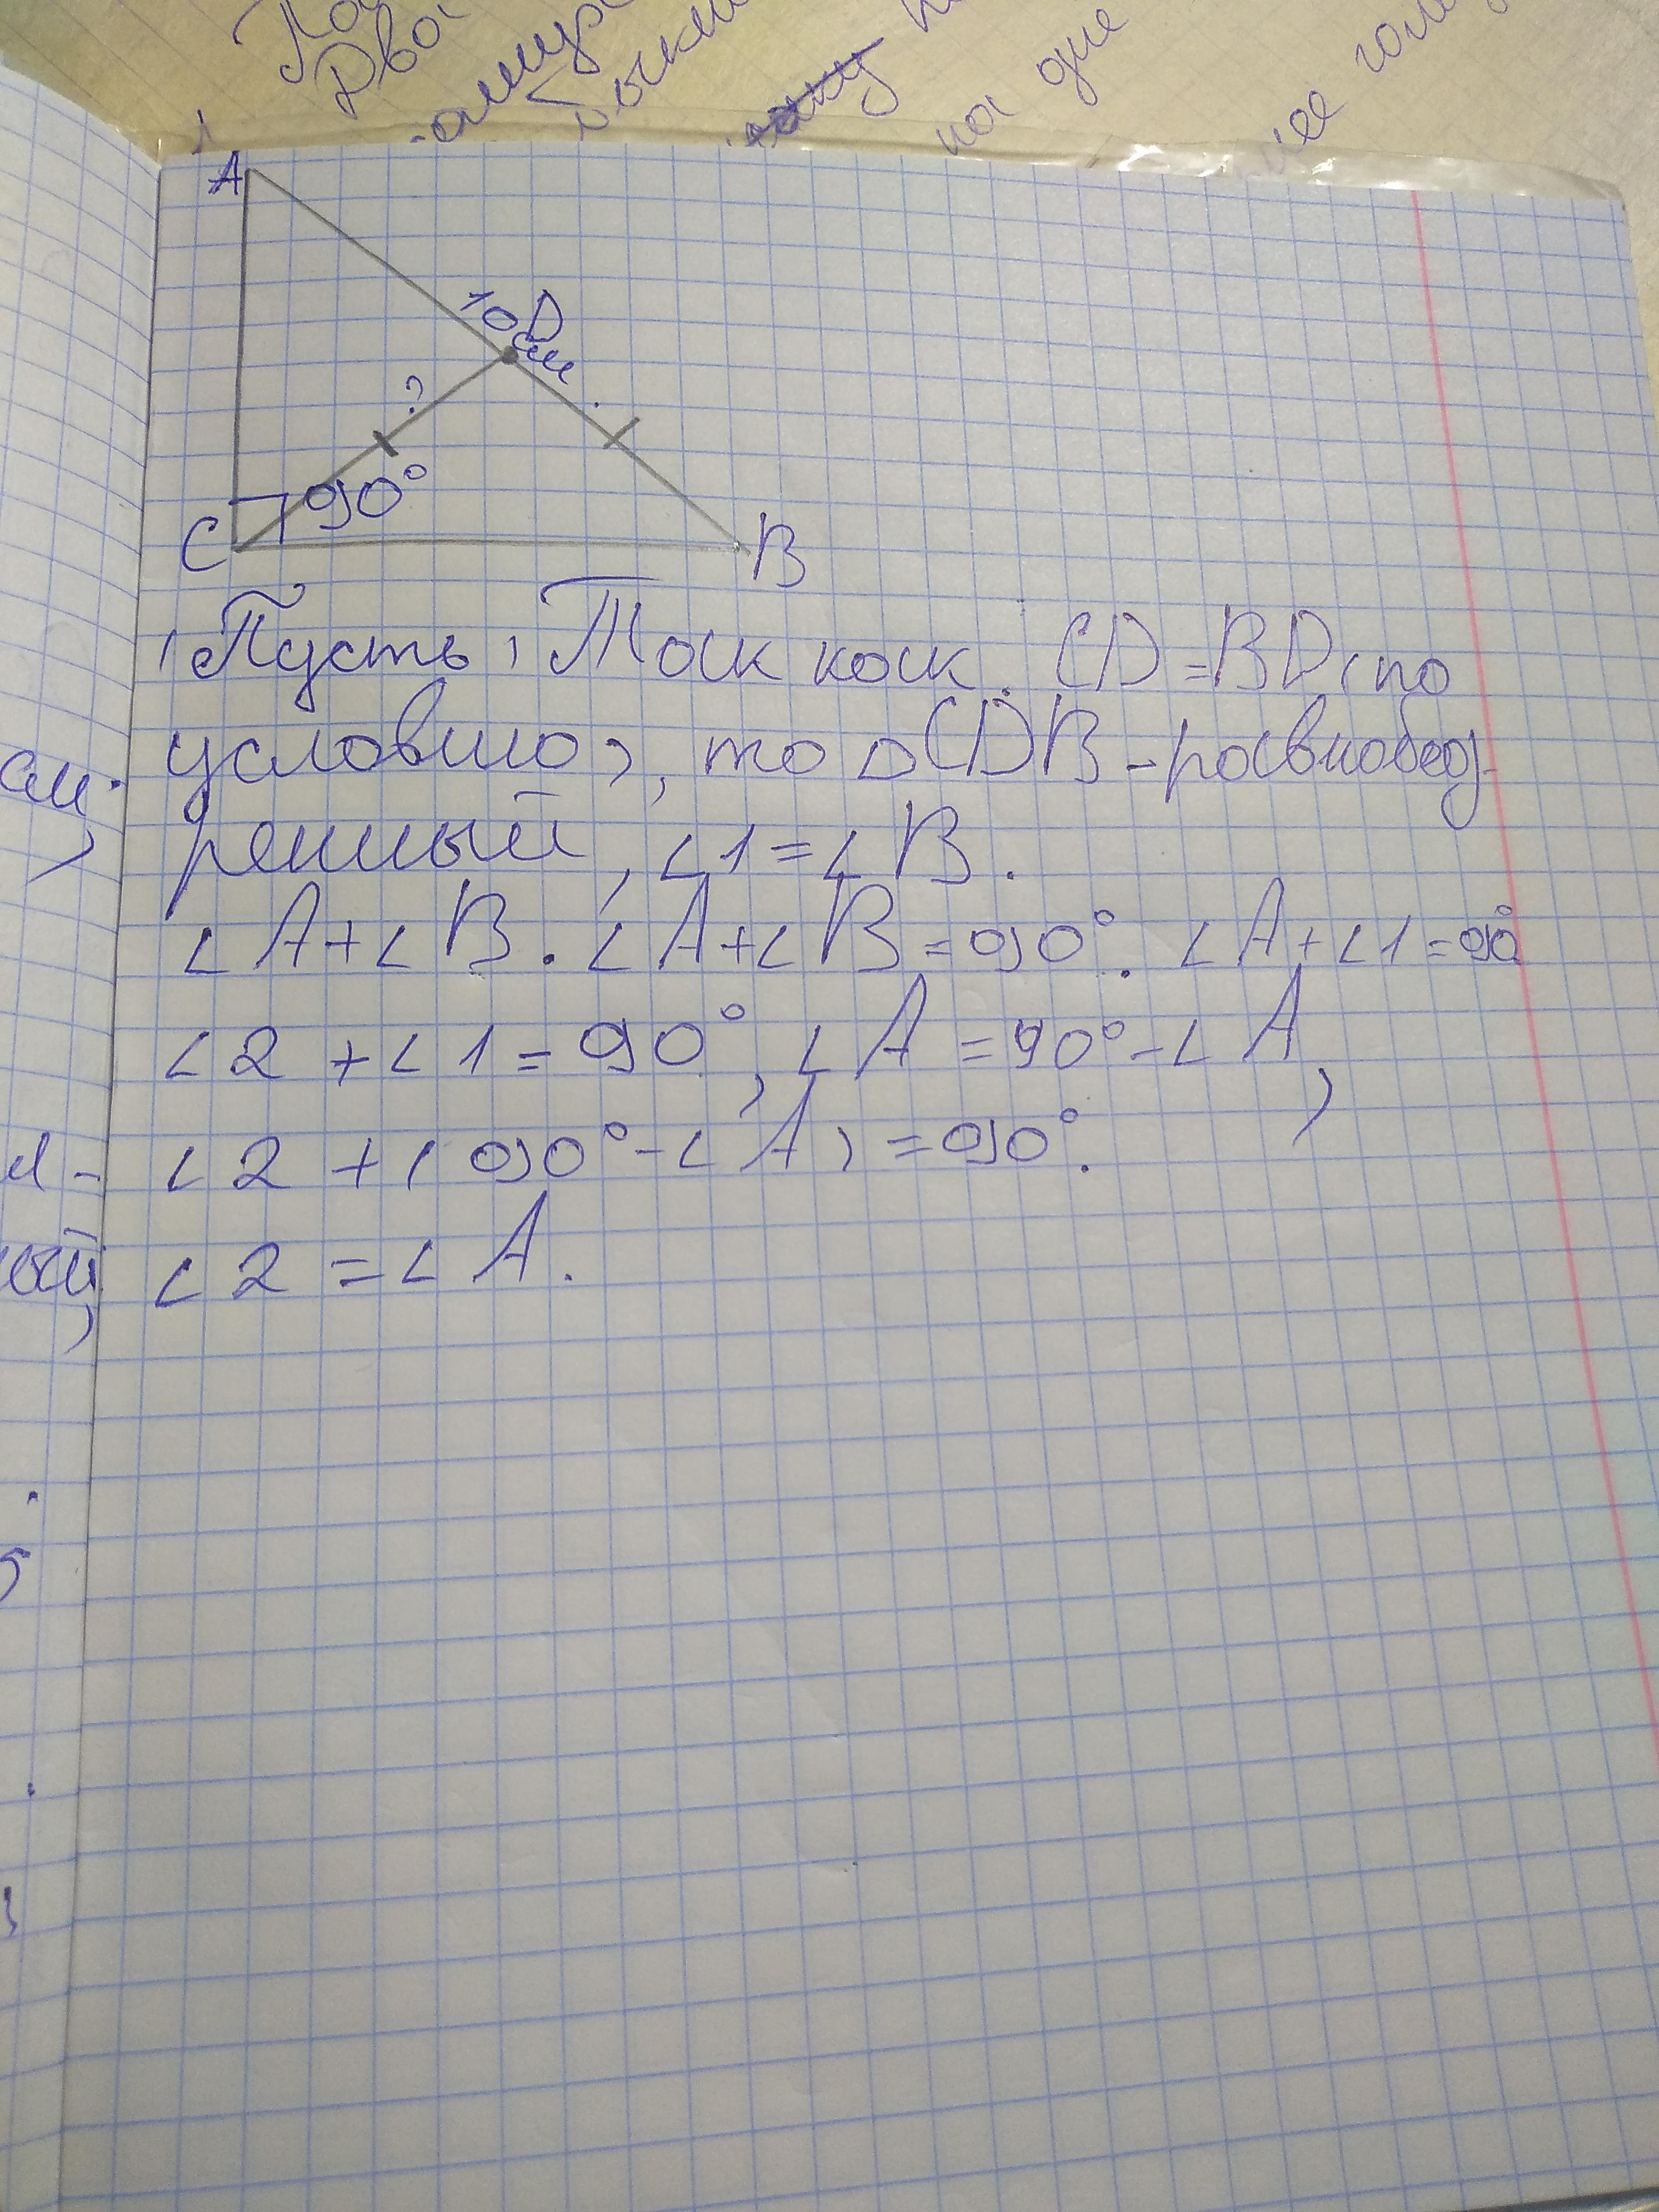 на дне
A
10 D
см
?
90°
C
B
(Пусть) Так как CD=BD(по
условию), то △CDB-равнобед-
см.
ренный, ∠1=∠B.
∠A+∠B. ∠A+∠B=90°. ∠A+∠1=90°
∠2+∠1=90°, ∠A=90°-∠A,
∠2+(90°-∠A)=90°.
∠2=∠A.